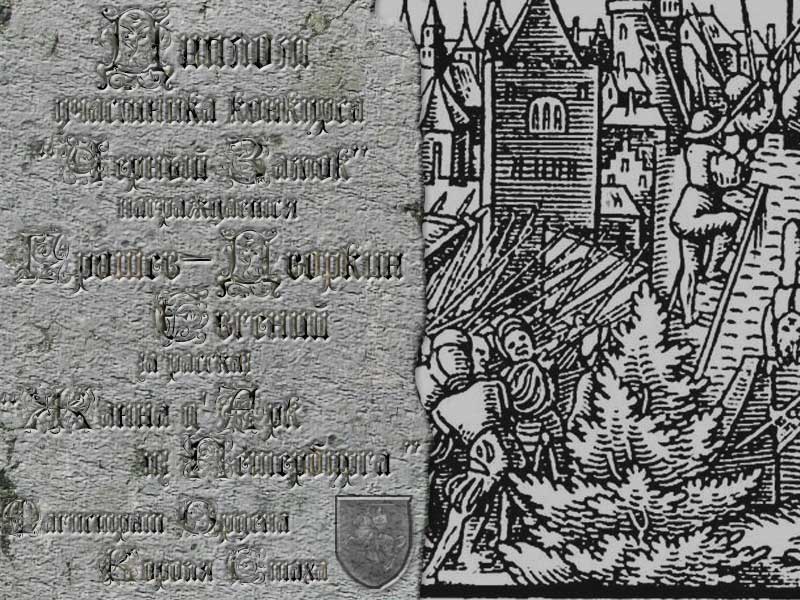 Диплом
участника конкурса
"Черный Замок"
награждается
Ерошев-Дворкин
Евгений
за рассказ
"Жанна д'Арк
из Петербурга"
Магистрат Ордена
Короля Стаха